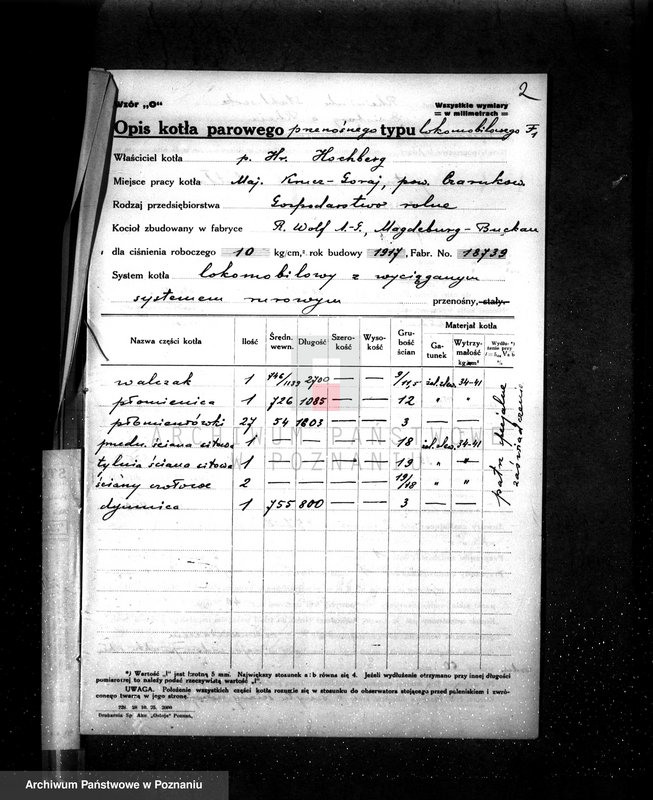 2
Wzór „O"
Wszystkie wymiary
= w milimetrach =
Opis kotła parowego przenośnego typu lokomobilowego F1
Właściciel kotła p. Hr. Hochberg
Miejsce pracy kotła Maj. Krucz-Goraj, pow. Czarnków
Rodzaj przedsiębiorstwa Gospodarstwo rolne
Kocioł zbudowany w fabryce R. Wolf A.-G., Magdeburg-Buckau
dla ciśnienia roboczego 10 kg/cm,² rok budowy 1917, Fabr. No. 18739
System kotła lokomobilowy z wyciąganym
systemem rurowym przenośny, stały.
Nazwa części kotła Ilość Średn. wewn. Długość Szerokość Wysokość Grubość ścian Materjał kotła
Gatunek Wytrzymałość kg/mm²
walczak 1 746/1139 2700 — — 9/11,5 żel. zlew. 34-41
płomienica 1 726 1085 — — 12 " "
płomieniówki 27 54 1803 — — 3 — —
przedn. ściana sitowa 1 — — — — 18 żel. zlew. 34-41
tylnia ściana sitowa 1 — — — — 19 " "
ściany czołowe 2 — — — — 19/18 " "
dymnica 1 755 800 — — 3 — —
patrz specjalne
zaświadczenie
ARCHIWUM PAŃSTWOWE
W POZNANIU
*) Wartość „l" jest krotną 5 mm. Największy stosunek a:b równa się 4. Jeżeli wydłużenie otrzymano przy innej długości
pomiarowej to należy podać rzeczywistą wartość „l".
UWAGA. Położenie wszystkich części kotła rozumie się w stosunku do obserwatora stojącego przed paleniskiem i zwróconego twarzą w jego stronę.
Drukarnia Sp. Akc. „Ostoja" Poznań.
Archiwum Państwowe w Poznaniu